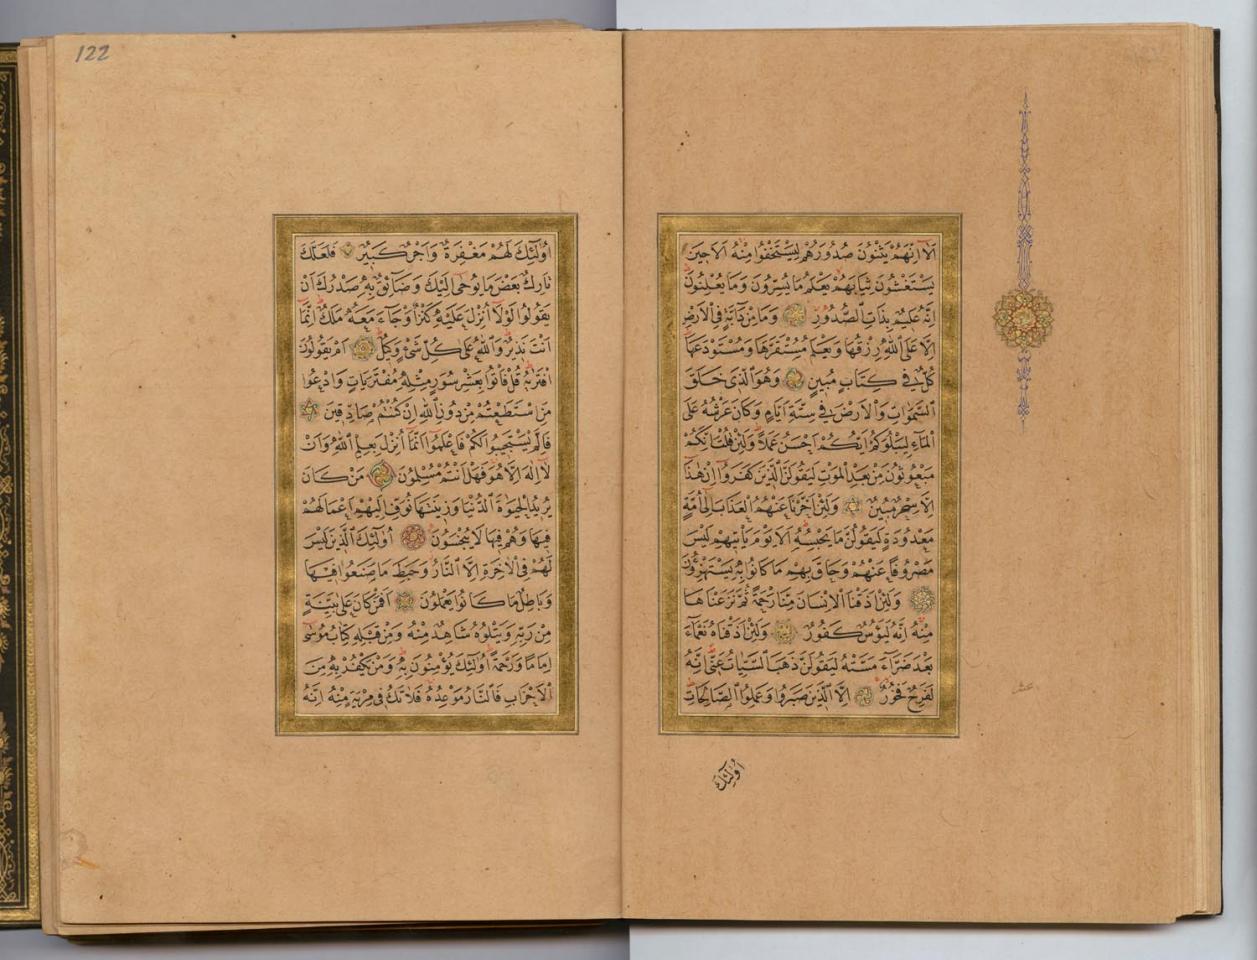 اَلَا اِنَّهُمْ يَثْنُونَ صُدُورَهُمْ لِيَسْتَخْفُوا مِنْهُ اَلَا حِينَ
يَسْتَغْشُونَ ثِيَابَهُمْ يَعْلَمُ مَا يُسِرُّونَ وَمَا يُعْلِنُونَ
اِنَّهُ عَلِيمٌ بِذَاتِ الصُّدُورِ وَمَا مِنْ دَابَّةٍ فِي الْاَرْضِ
اِلَّا عَلَى اللّٰهِ رِزْقُهَا وَيَعْلَمُ مُسْتَقَرَّهَا وَمُسْتَوْدَعَهَا
كُلٌّ فِي كِتَابٍ مُبِينٍ وَهُوَ الَّذِي خَلَقَ
السَّمٰوَاتِ وَالْاَرْضَ فِي سِتَّةِ اَيَّامٍ وَكَانَ عَرْشُهُ عَلَى
الْمَاءِ لِيَبْلُوَكُمْ اَيُّكُمْ اَحْسَنُ عَمَلًا وَلَئِنْ قُلْتَ اِنَّكُمْ
مَبْعُوثُونَ مِنْ بَعْدِ الْمَوْتِ لَيَقُولَنَّ الَّذِينَ كَفَرُوا اِنْ هٰذَا
اِلَّا سِحْرٌ مُبِينٌ وَلَئِنْ اَخَّرْنَا عَنْهُمُ الْعَذَابَ اِلٰى اُمَّةٍ
مَعْدُودَةٍ لَيَقُولُنَّ مَا يَحْبِسُهُ اَلَا يَوْمَ يَاْتِيهِمْ لَيْسَ
مَصْرُوفًا عَنْهُمْ وَحَاقَ بِهِمْ مَا كَانُوا بِهِ يَسْتَهْزِؤُنَ
وَلَئِنْ اَذَقْنَا الْاِنْسَانَ مِنَّا رَحْمَةً ثُمَّ نَزَعْنَاهَا
مِنْهُ اِنَّهُ لَيَؤُسٌ كَفُورٌ وَلَئِنْ اَذَقْنَاهُ نَعْمَاءَ
بَعْدَ ضَرَّاءَ مَسَّتْهُ لَيَقُولَنَّ ذَهَبَ السَّيِّاٰتُ عَنِّي اِنَّهُ
لَفَرِحٌ فَخُورٌ اِلَّا الَّذِينَ صَبَرُوا وَعَمِلُوا الصَّالِحَاتِ
اُولٰئِكَ
عشر
122
اُولٰئِكَ لَهُمْ مَغْفِرَةٌ وَاَجْرٌ كَبِيرٌ فَلَعَلَّكَ
تَارِكٌ بَعْضَ مَا يُوحٰى اِلَيْكَ وَضَائِقٌ بِهِ صَدْرُكَ اَنْ
يَقُولُوا لَوْلَا اُنْزِلَ عَلَيْهِ كَنْزٌ اَوْ جَاءَ مَعَهُ مَلَكٌ اِنَّمَا
اَنْتَ نَذِيرٌ وَاللّٰهُ عَلٰى كُلِّ شَيْءٍ وَكِيلٌ اَمْ يَقُولُونَ
افْتَرٰيهُ قُلْ فَاْتُوا بِعَشْرِ سُوَرٍ مِثْلِهِ مُفْتَرَيَاتٍ وَادْعُوا
مَنِ اسْتَطَعْتُمْ مِنْ دُونِ اللّٰهِ اِنْ كُنْتُمْ صَادِقِينَ
فَاِلَّمْ يَسْتَجِيبُوا لَكُمْ فَاعْلَمُوا اَنَّمَا اُنْزِلَ بِعِلْمِ اللّٰهِ وَاَنْ
لَا اِلٰهَ اِلَّا هُوَ فَهَلْ اَنْتُمْ مُسْلِمُونَ مَنْ كَانَ
يُرِيدُ الْحَيٰوةَ الدُّنْيَا وَزِينَتَهَا نُوَفِّ اِلَيْهِمْ اَعْمَالَهُمْ
فِيهَا وَهُمْ فِيهَا لَا يُبْخَسُونَ اُولٰئِكَ الَّذِينَ لَيْسَ
لَهُمْ فِي الْاٰخِرَةِ اِلَّا النَّارُ وَحَبِطَ مَا صَنَعُوا فِيهَا
وَبَاطِلٌ مَا كَانُوا يَعْمَلُونَ اَفَمَنْ كَانَ عَلٰى بَيِّنَةٍ
مِنْ رَبِّهِ وَيَتْلُوهُ شَاهِدٌ مِنْهُ وَمِنْ قَبْلِهِ كِتَابُ مُوسٰى
اِمَامًا وَرَحْمَةً اُولٰئِكَ يُؤْمِنُونَ بِهِ وَمَنْ يَكْفُرْ بِهِ مِنَ
الْاَحْزَابِ فَالنَّارُ مَوْعِدُهُ فَلَا تَكُ فِي مِرْيَةٍ مِنْهُ اِنَّهُ